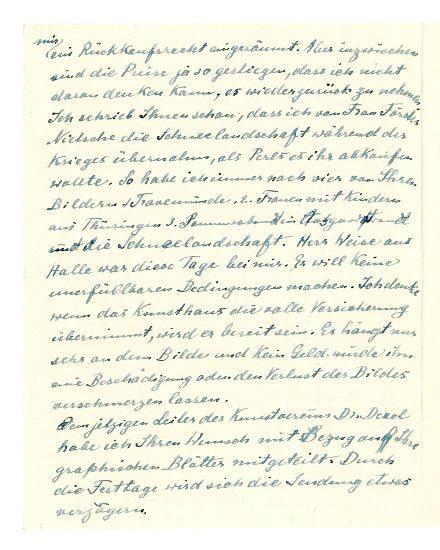 mir
ein Rückkaufsrecht eingeräumt. Aber inzwischen
sind die Preise ja so gestiegen, dass ich nicht
daran denken kann, es wieder zurück zu nehmen.
Ich schrieb Ihnen schon, dass ich von Frau Förster
Nietsche die Schneelandschaft während des
Krieges übernahm, als Perls es ihr abkaufen
wollte. So habe ich immer noch vier von Ihren
Bildern 1 Travemünde. 2. Frauen mit Kindern
aus Thüringen 3.
und die Schneelandschaft. Herr Weise aus
Halle war diese Tage bei mir. Er will keine
unerfüllbaren Bedingungen machen. Ich denke
wenn das Kunsthaus die volle Versicherung
übernimmt, wird er bereit sein. Er hängt nur
sehr an dem Bilde und kein Geld würde ihm
eine Beschädigung oder den Verlust des Bildes
verschmerzen lassen.
Dem jetzigen Leiter des Kunstvereins Dr. Dexel
habe ich Ihren Wunsch mit Bezug auf Ihre
graphischen Blätter mitgeteilt. Durch
die Festtage wird sich die Sendung etwas
verzögern.